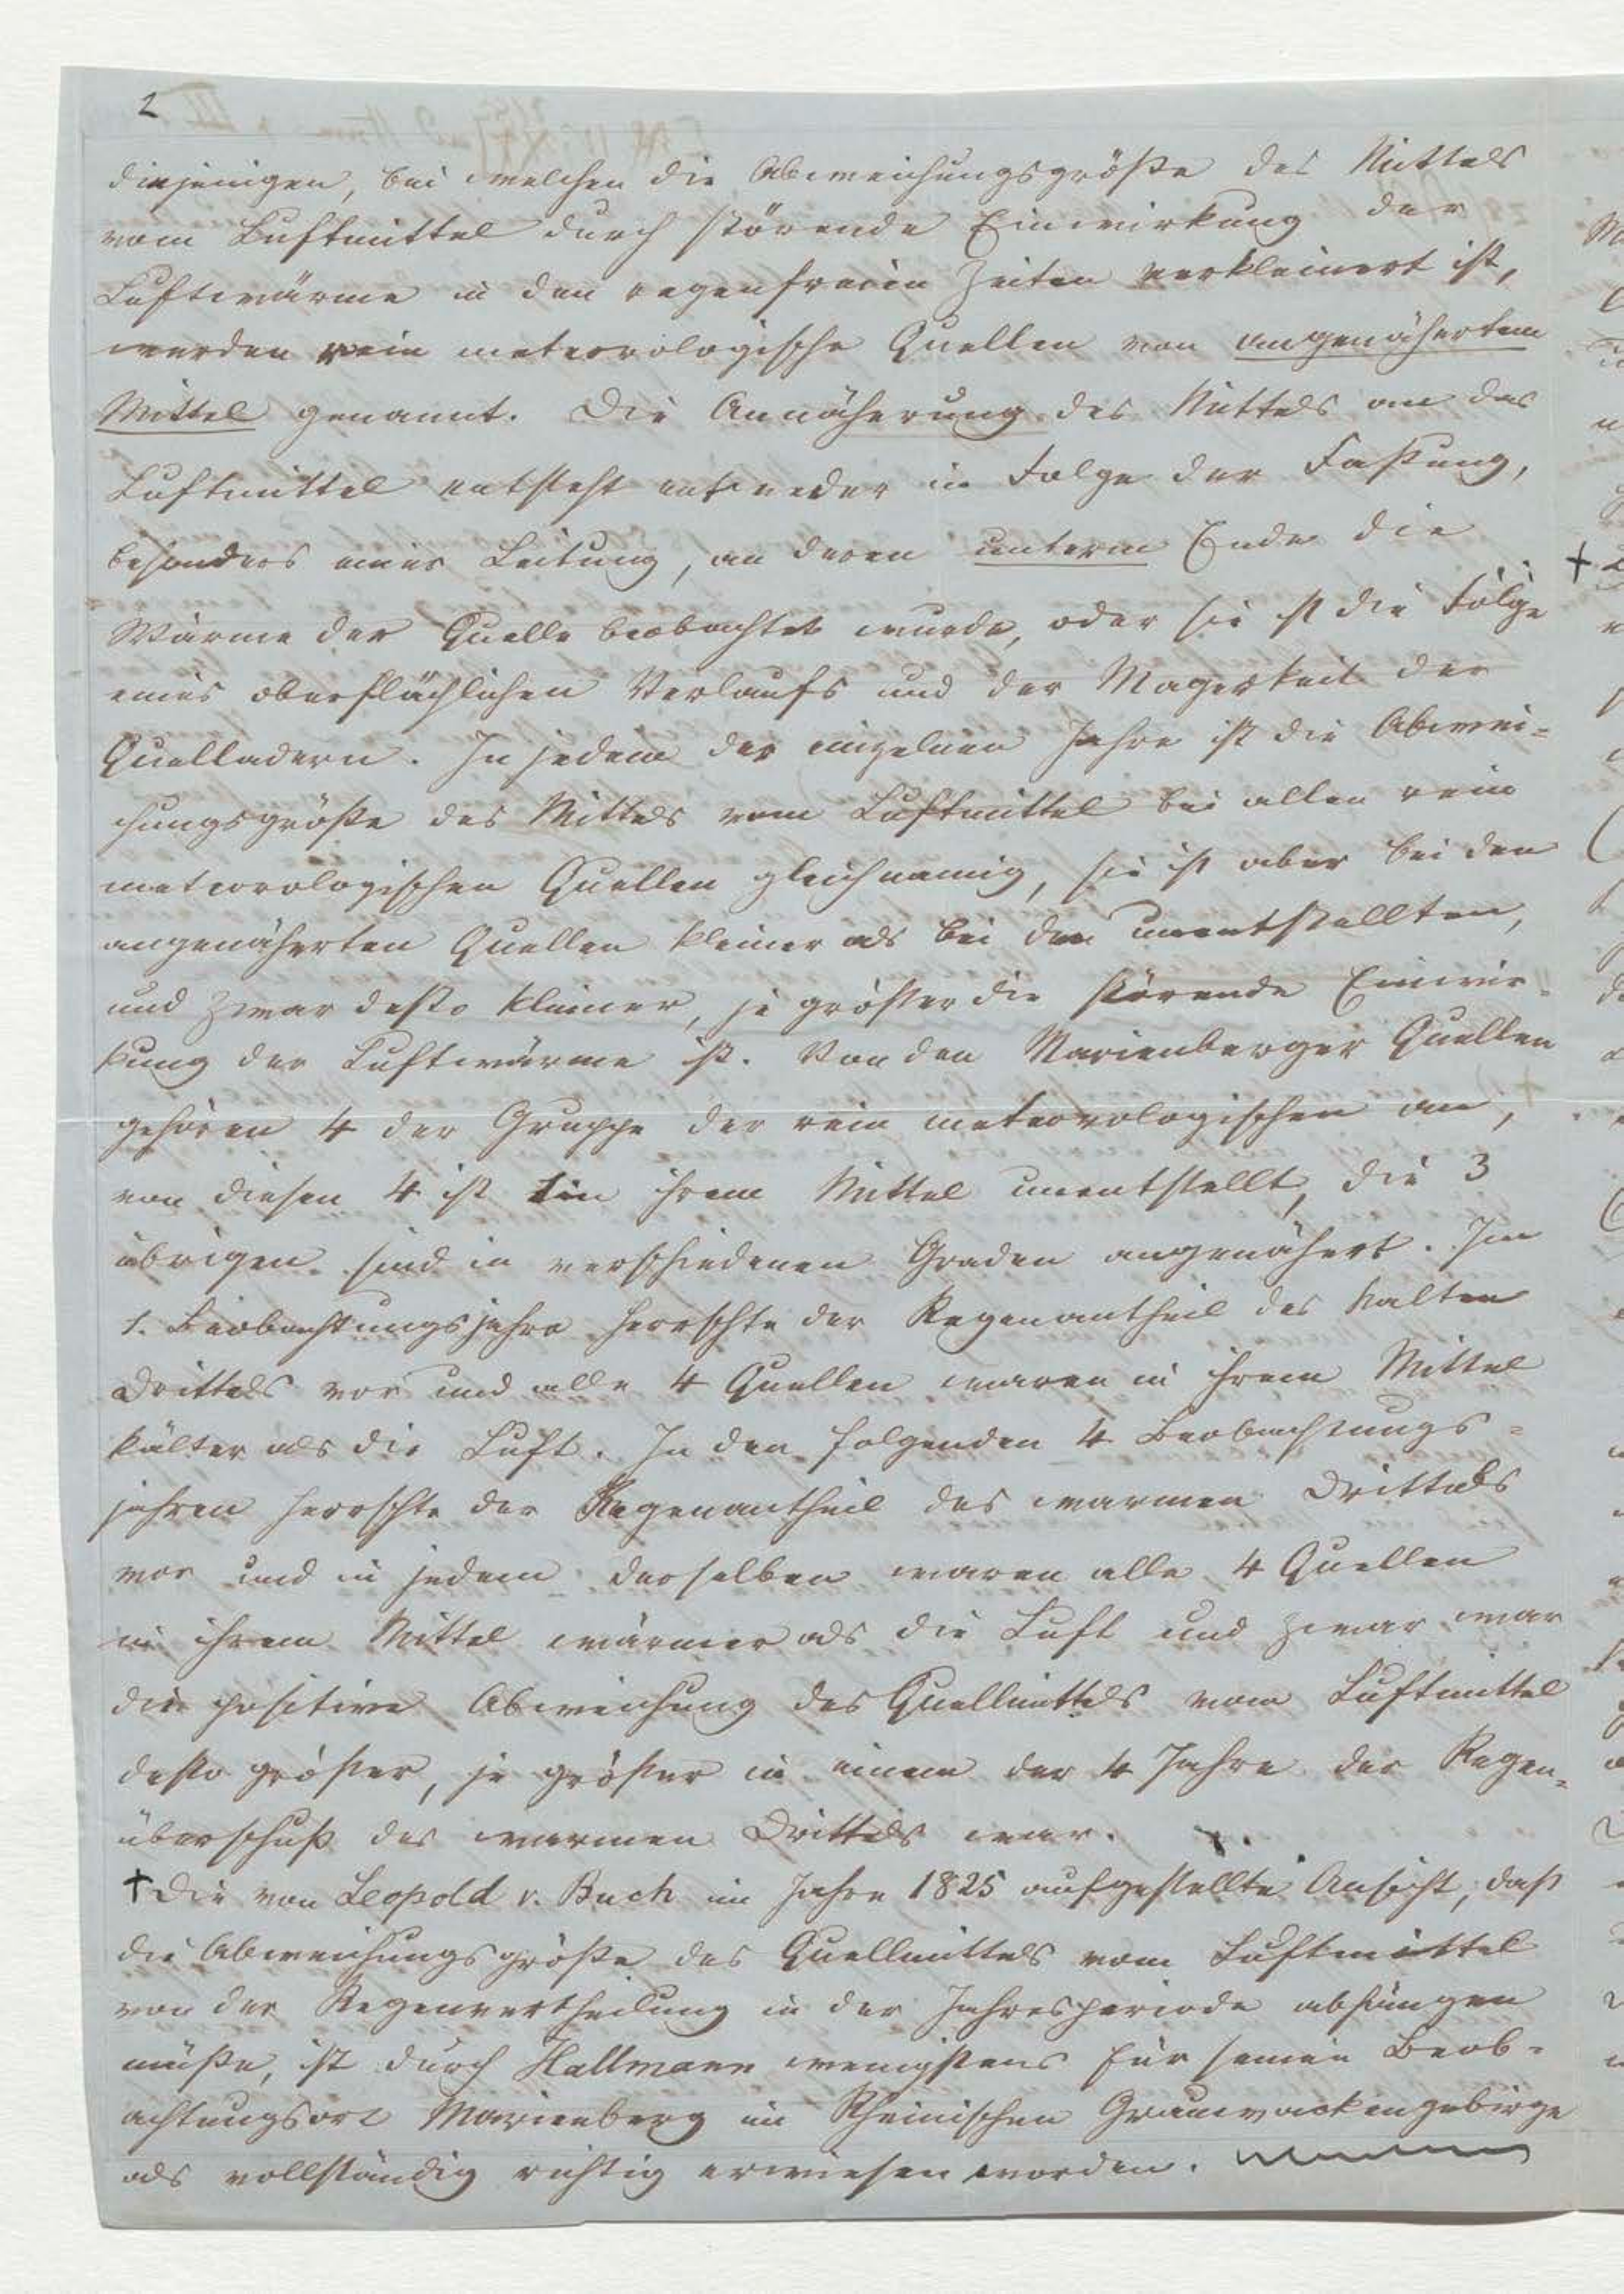 2
diejenigen, bei welchen die Abweichungsgröße des Mittels
vom Luftmittel durch störende Einwirkung der
Luftwärme in den regenfreien Zeiten verkleinert ist,
werden rein meteorologische Quellen von angenähertem
Mittel genannt. Die Annäherung des Mittels an das
Luftmittel entsteht entweder in Folge der Faßung,
besonders einer Leitung, an deren unterm Ende die
Wärme der Quelle beobachtet wurde, oder sie ist die Folge
eines oberflächlichen Verlaufs und der Magerkeit der
Quelladern. In jedem der einzelnen Jahre ist die Abwei=
chungsgröße des Mittels vom Luftmittel bei allen rein
meteorologischen Quellen gleichnamig, sie ist aber bei den
angenäherten Quellen kleiner als bei den unentstellten,
und zwar desto kleiner, je größer die störende Einwir=
kung der Luftwärme ist. Von den Marienberger Quellen
gehören 4 der Gruppe der rein meteorologischen an,
von diesen 4 ist 1 in ihrem Mittel unentstellt, die 3
übrigen sind in verschiedenen Graden angenähert. Im
1. Beobachtungsjahre herrschte der Regenantheil des kalten
Drittels vor und alle 4 Quellen waren in ihrem Mittel
kälter als die Luft. In den folgenden 4 Beobachtungs=
jahren herrschte der Regenantheil des warmen Drittels
vor und in jedem derselben waren alle 4 Quellen
in ihrem Mittel wärmer als die Luft und zwar war
die positive Abweichung des Quellmittels vom Luftmittel
desto größer, je größer in einem der 4 Jahre der Regen=
überschuß des warmen Drittels war.
† Die von Leopold v. Buch im Jahre 1825 aufgestellte Ansicht, daß
die Abweichungsgröße des Quellmittels vom Luftmittel
von der Regenvertheilung in der Jahresperiode abhängen
müße, ist durch Hallmann wenigstens für seinen Beob=
achtungsort Marienberg im Rheinischen Grauwackengebirge
als vollständig richtig erwiesen worden.